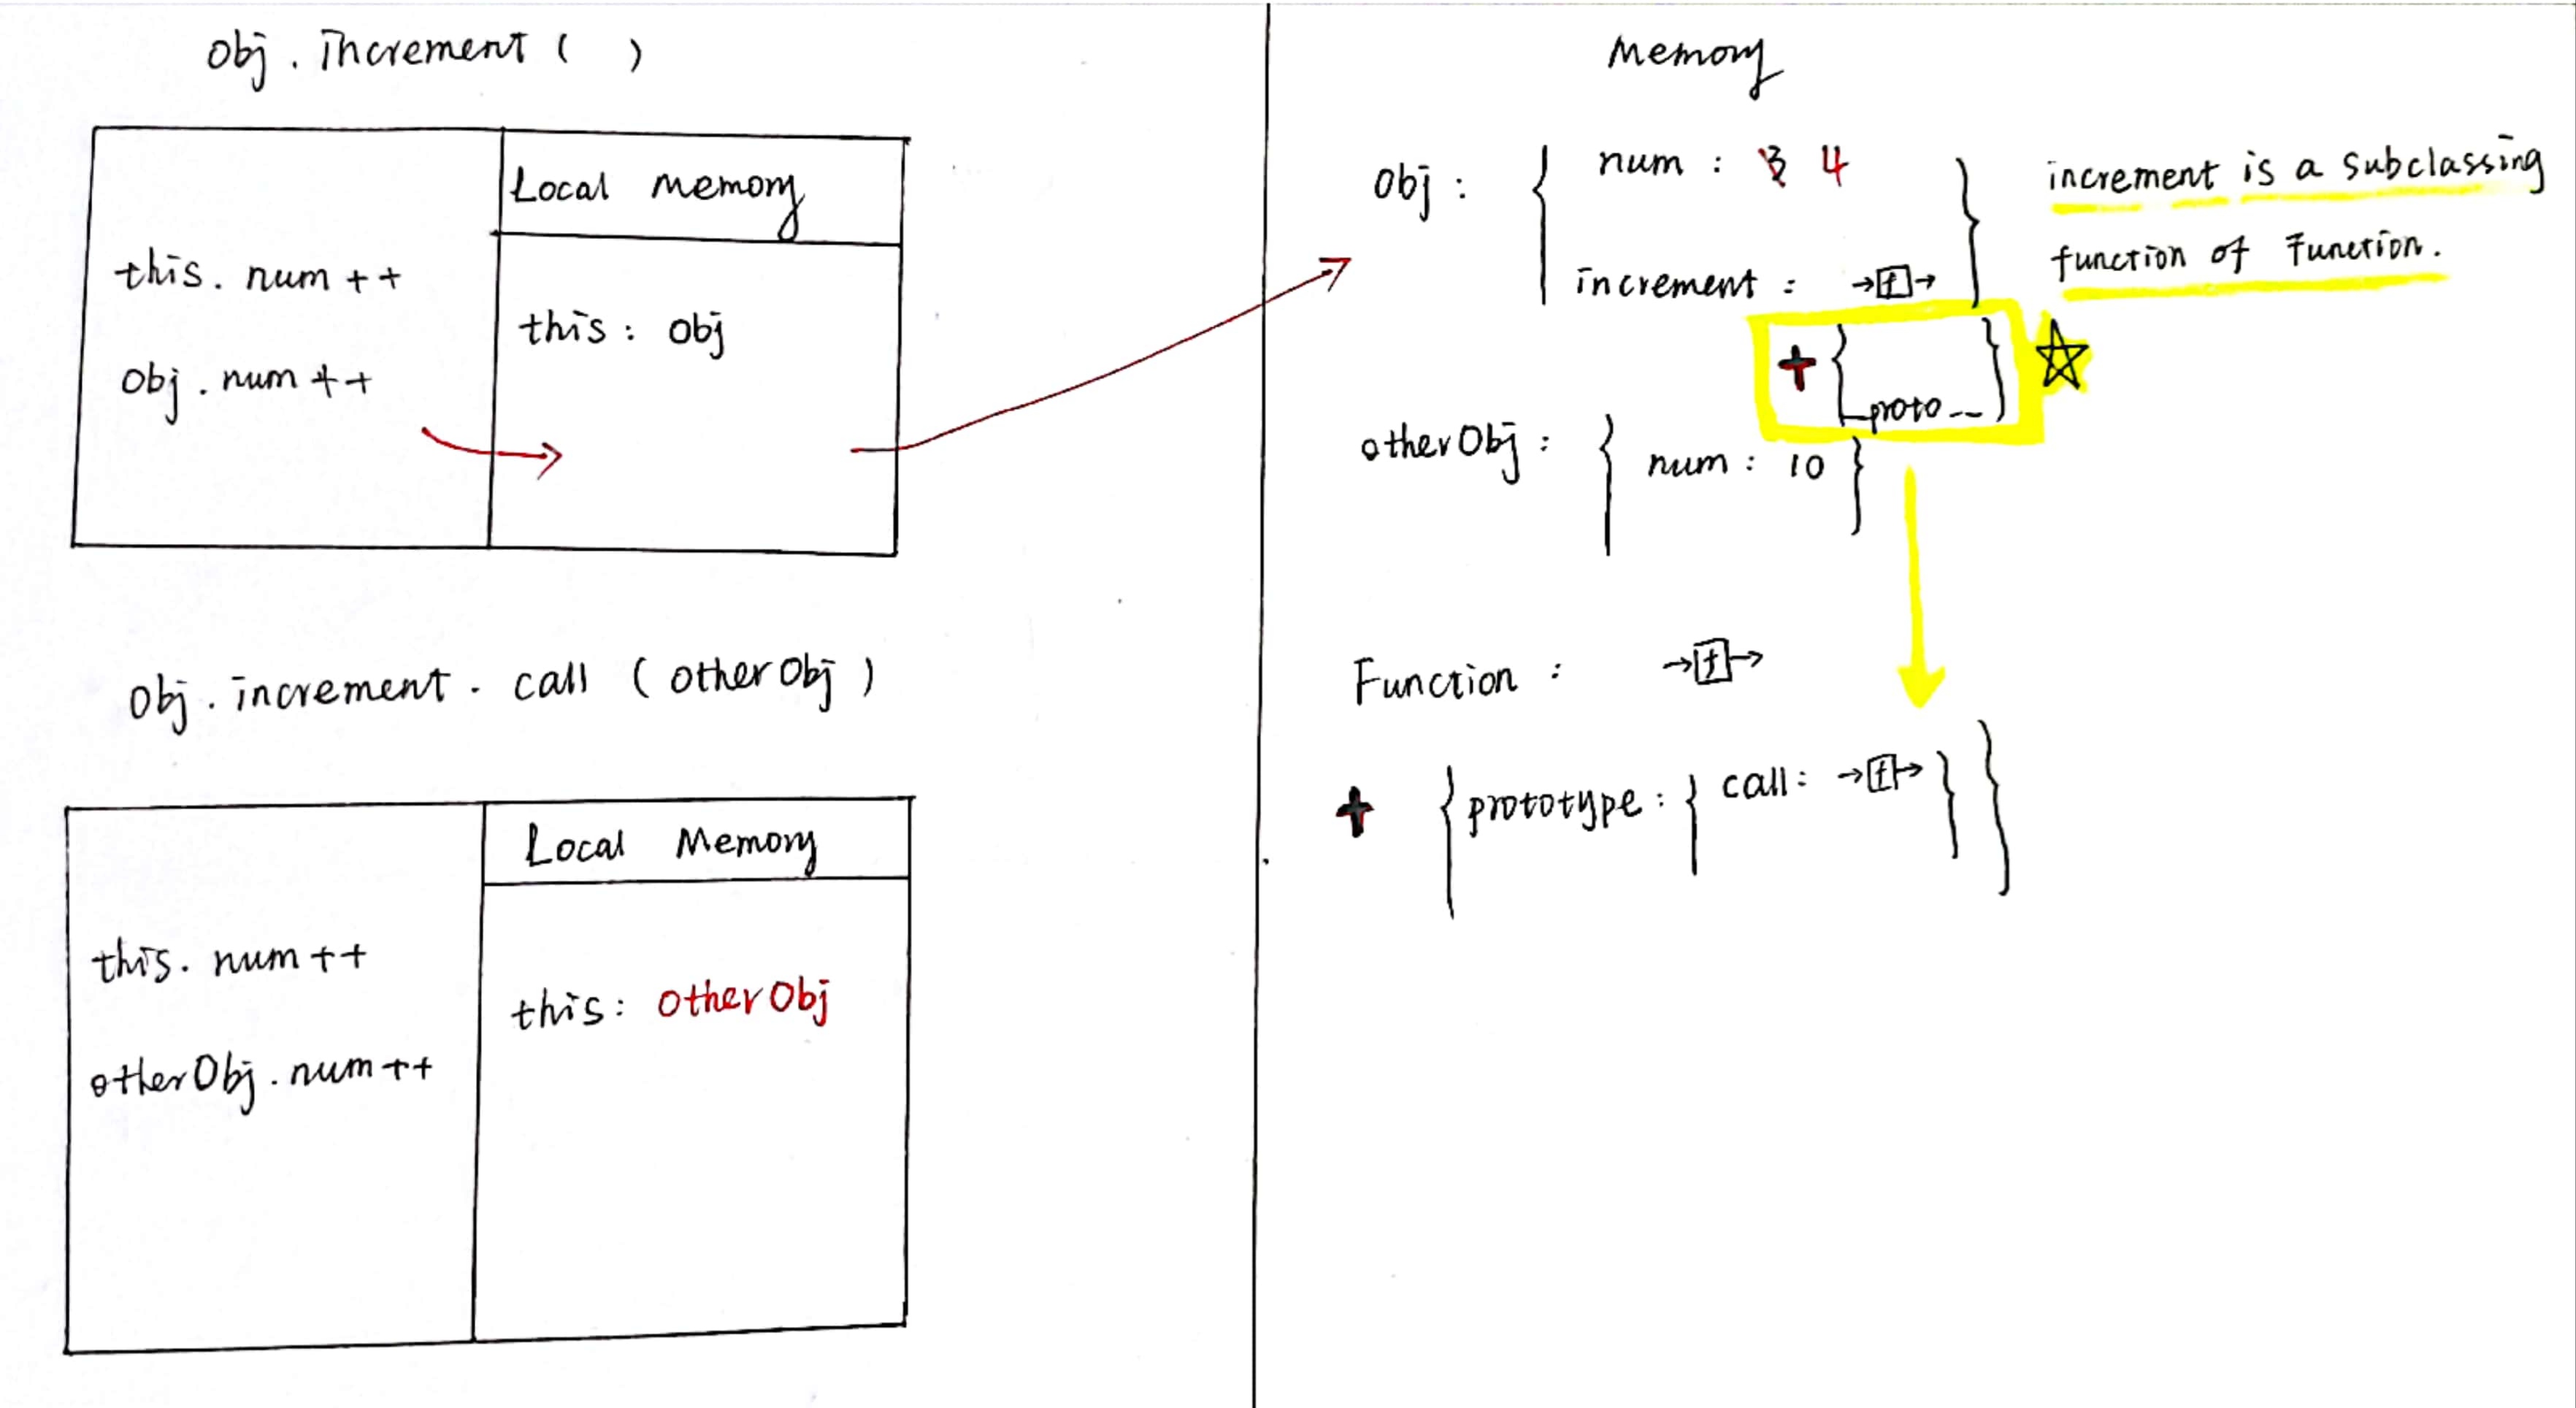 Obj . increment ( )
Local Memory
this . num ++
this : obj
Obj . num ++
Obj . increment . call ( otherObj )
Local Memory
this . num ++
this : otherObj
otherObj . num ++
Memory
Obj : { num : 3 4
increment : →[f]→ }
+ { __proto__ }
increment is a subclassing
function of Function.
otherObj : { num : 10 }
Function : →[f]→
+ { prototype : { call : →[f]→ } }